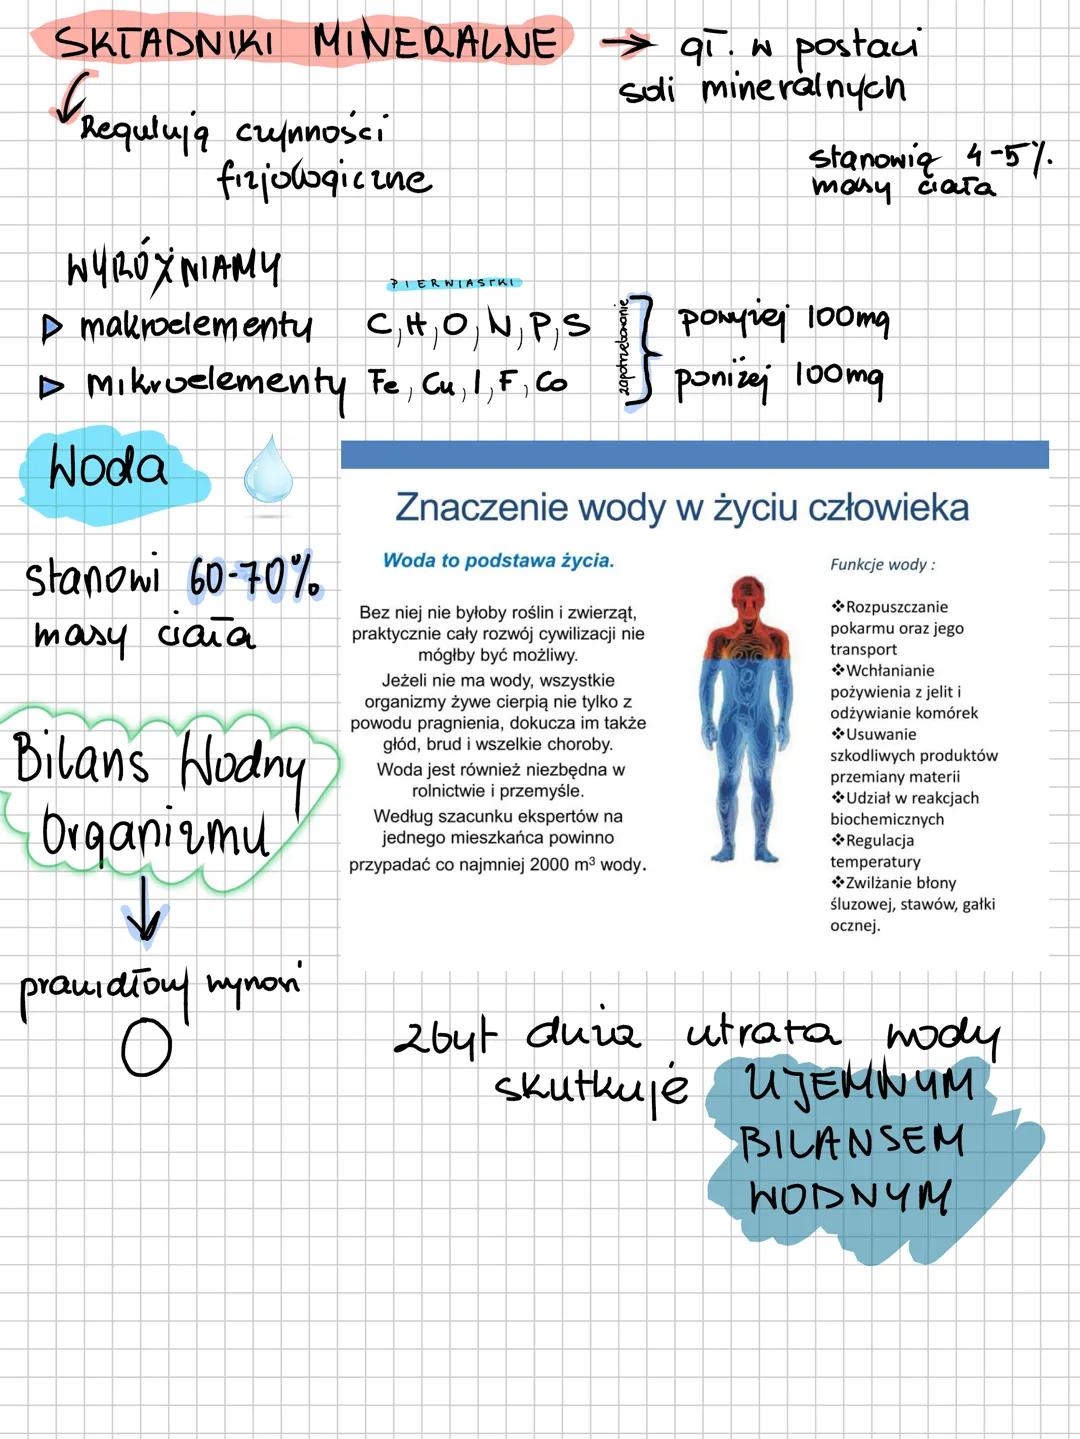 SKŁADNIKI MINERALNE → gł. w postaci
soli mineralnych
Regulują czynności
fizjologiczne
stanowią 4-5%
masy ciała
WYRÓŻNIAMY
PIERWIASTKI
makroelementy C, H, O, N, P, S
powyżej 100mg
mikroelementy Fe, Cu, I, F, Co
poniżej 100mg
zapotrzebowanie
Woda
stanowi 60-70%
masy ciała
Znaczenie wody w życiu człowieka
Woda to podstawa życia.
Bez niej nie byłoby roślin i zwierząt,
praktycznie cały rozwój cywilizacji nie
mógłby być możliwy.
Jeżeli nie ma wody, wszystkie
organizmy żywe cierpią nie tylko z
powodu pragnienia, dokucza im także
głód, brud i wszelkie choroby.
Woda jest również niezbędna w
rolnictwie i przemyśle.
Według szacunku ekspertów na
jednego mieszkańca powinno
przypadać co najmniej 2000 m³ wody.
Funkcje wody :
❖Rozpuszczanie
pokarmu oraz jego
transport
❖Wchłanianie
pożywienia z jelit i
odżywianie komórek
❖Usuwanie
szkodliwych produktów
przemiany materii
❖Udział w reakcjach
biochemicznych
❖Regulacja
temperatury
❖Zwilżanie błony
śluzowej, stawów, gałki
ocznej.
Bilans Wodny
Organizmu
prawidłowy wynosi
0
zbyt duża utrata wody
skutkuje UJEMNYM
BILANSEM
WODNYM